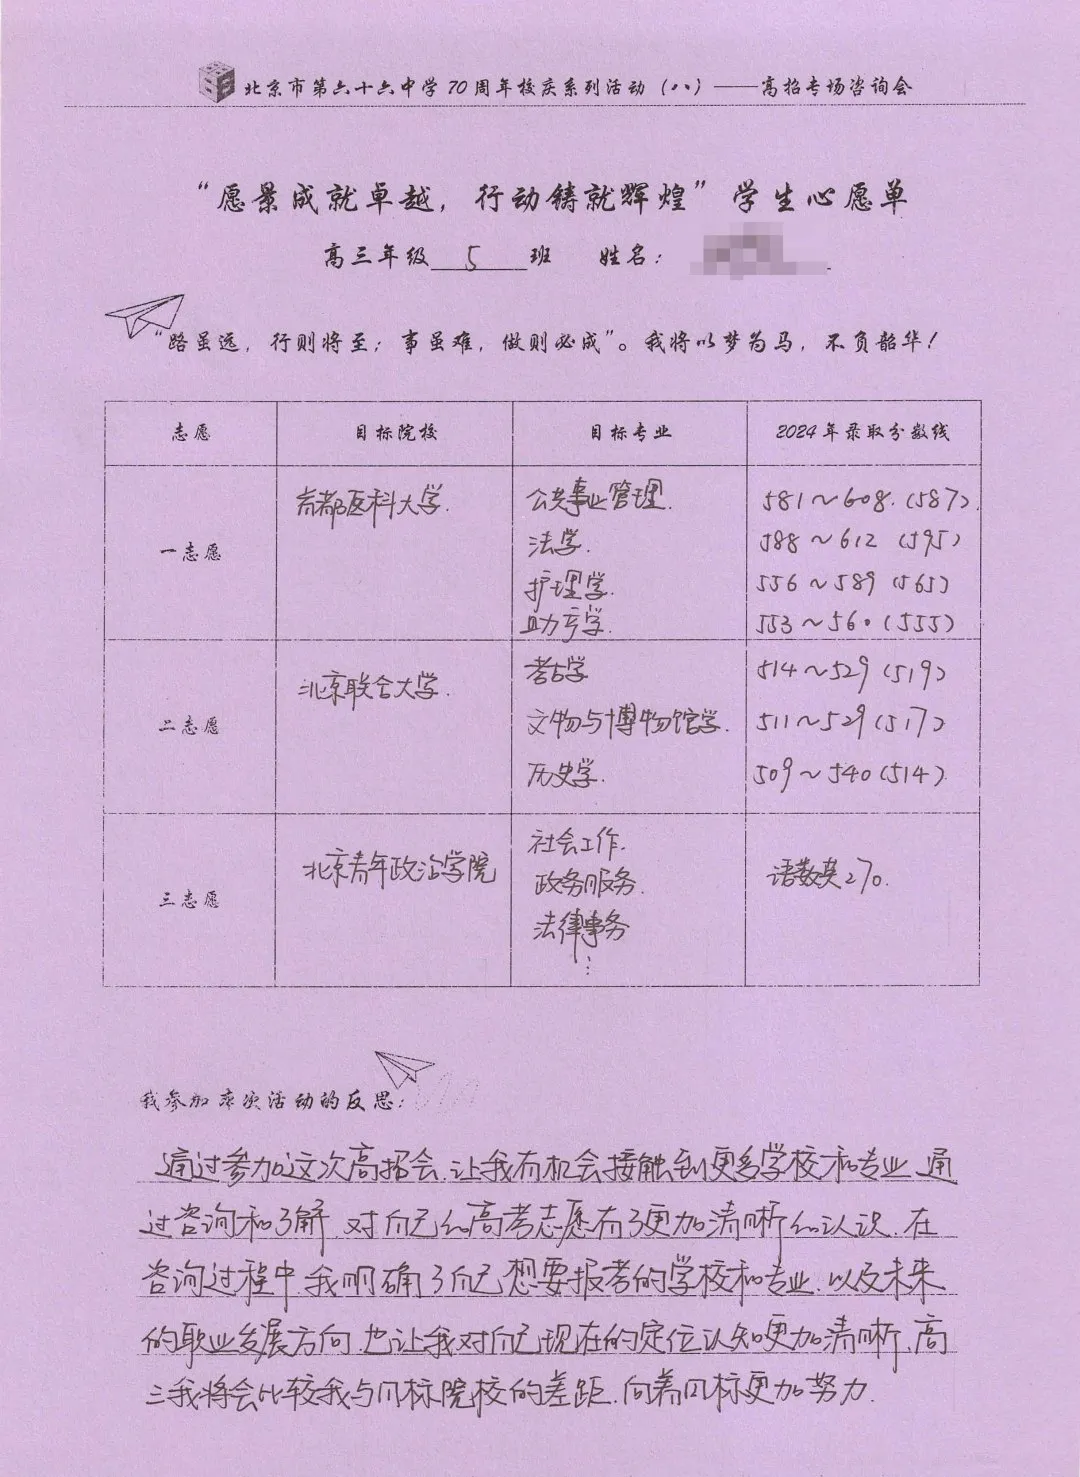 北京市第六十六中学70周年校庆系列活动（八）——高招专场咨询会
“愿景成就卓越，行动铸就辉煌”学生心愿单
高三年级 5 班 姓名：
“路虽远，行则将至；事虽难，做则必成”。我将以梦为马，不负韶华！
志愿 目标院校 目标专业 2024年录取分数线
一志愿 首都医科大学. 公共事业管理. 581～608.(587).
法学. 588～612 (595)
护理学. 556～589 (565)
助产学. 553～560(555)
二志愿 北京联合大学. 考古学 514～529(519)
文物与博物馆学. 511～529(517)
历史学. 509～540(514).
三志愿 北京青年政治学院 社会工作. 语数英270.
政务服务.
法律事务
⋮
我参加本次活动的反思：
通过参加这次高招会.让我有机会接触到更多学校和专业.通
过咨询和了解.对自己的高考志愿有了更加清晰的认识.在
咨询过程中.我明确了自己想要报考的学校和专业.以及未来
的职业发展方向.也让我对自己现在的定位认知更加清晰.高
三我将会比较我与目标院校的差距.向着目标更加努力.